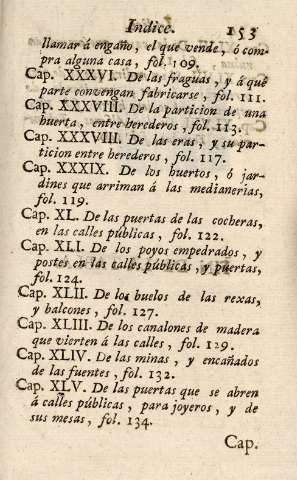 Indice. 153
llamar á engaño, el que vende, ó com-
pra alguna casa, fol. 109.
Cap. XXXVI. De las fraguas, y á qué
parte convengan fabricarse, fol. 111.
Cap. XXXVIII. De la particion de una
huerta, entre herederos, fol. 113.
Cap. XXXVIII. De las eras, y su par-
ticion entre herederos, fol. 117.
Cap. XXXIX. De los huertos, ó jar-
dines que arriman á las medianerias,
fol. 119.
Cap. XL. De las puertas de las cocheras,
en las calles públicas, fol. 122.
Cap. XLI. De los poyos empedrados, y
postes en las calles públicas, y puertas,
fol. 124.
Cap. XLII. De los buelos de las rexas,
y balcones, fol. 127.
Cap. XLIII. De los canalones de madera
que vierten á las calles, fol. 129.
Cap. XLIV. De las minas, y encañados
de las fuentes, fol. 132.
Cap. XLV. De las puertas que se abren
á calles públicas, para joyeros, y de
sus mesas, fol. 134.
Cap.